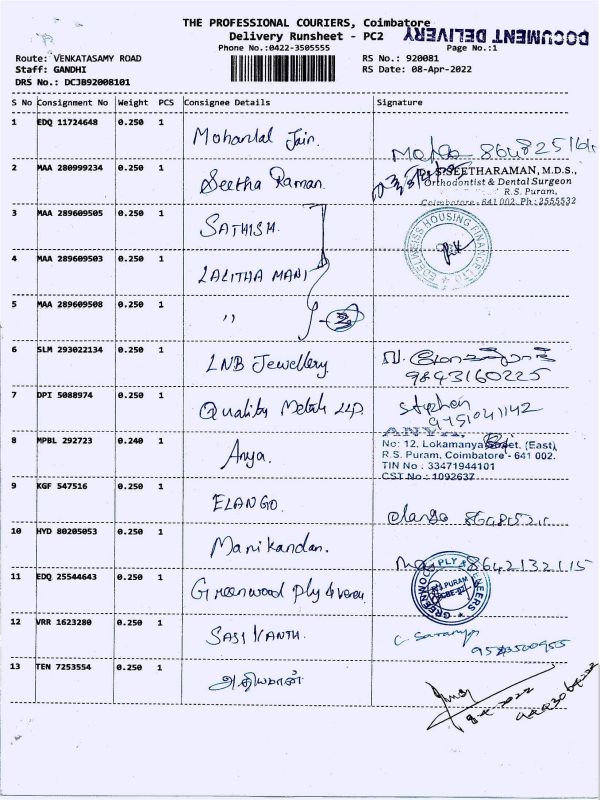 THE PROFESSIONAL COURIERS, Coimbatore
DOCUMENT DELIVERY
Delivery Runsheet - PC2
Phone No.:0422-3505555
Page No.:1
Route: VENKATASAMY ROAD
RS No.: 920081
Staff: GANDHI
RS Date: 08-Apr-2022
DRS No.: DCJB92008101
S No Consignment No Weight PCS Consignee Details Signature
1 EDQ 11724648 0.250 1 Mohanlal Jain.
2 MAA 280999234 0.250 1 Seetha Raman.
SEETHARAMAN, M.D.S.,
Orthodontist & Dental Surgeon
R.S. Puram,
Coimbatore - 641 002. Ph : 2555532
3 MAA 289609505 0.250 1 SATHISH.
EDELWEISS HOUSING FINANCE LTD
4 MAA 289609503 0.250 1 LALITHA MANI
5 MAA 289609508 0.250 1 ,,
6 SLM 293022134 0.250 1 LNB Jewellery
9843160225
7 DPI 5088974 0.250 1 Quality Metals LLP. Stephen
9751041142
8 MPBL 292723 0.240 1 Anya.
ANYA.
No: 12, Lokamanya Street, (East),
R.S. Puram, Coimbatore - 641 002.
TIN No : 33471944101
CST No : 1092637
9 KGF 547516 0.250 1 ELANGO. elango
10 HYD 80205053 0.250 1 Manikandan. 8642132115
11 EDQ 25544643 0.250 1 Greenwood Ply & Veneers
GREENWOOD PLY VENEERS
R.S.PURAM
12 VRR 1623280 0.250 1 SASI KANTH. C. Saranya
13 TEN 7253554 0.250 1 அதியமான்